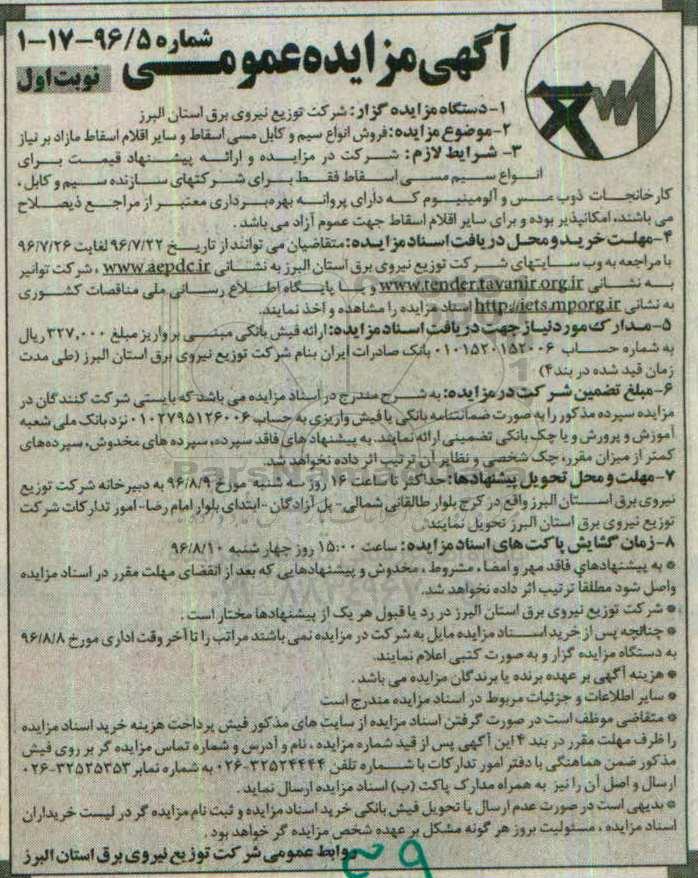 آگهی مزایده عمومی
شماره ۹۶/۵-۱۷-۱
نوبت اول
۱- دستگاه مزایده گزار: شرکت توزیع نیروی برق استان البرز
۲- موضوع مزایده: فروش انواع سیم و کابل مسی اسقاط و سایر اقلام اسقاط مازاد بر نیاز
۳- شرایط لازم: شرکت در مزایده و ارائه پیشنهاد قیمت برای
انواع سیم مسی اسقاط فقط برای شرکتهای سازنده سیم و کابل،
کارخانجات ذوب مس و آلومینیوم که دارای پروانه بهره‌برداری معتبر از مراجع ذیصلاح
می باشند، امکانپذیر بوده و برای سایر اقلام اسقاط جهت عموم آزاد می باشد.
۴- مهلت خرید و محل دریافت اسناد مزایده: متقاضیان می توانند از تاریخ ۹۶/۷/۲۲ لغایت ۹۶/۷/۲۶
با مراجعه به وب سایتهای شرکت توزیع نیروی برق استان البرز به نشانی www.aepdc.ir، شرکت توانیر
به نشانی www.tender.tavanir.org.ir و یا پایگاه اطلاع رسانی ملی مناقصات کشوری
به نشانی http://iets.mporg.ir اسناد مزایده را مشاهده و اخذ نمایند.
۵- مدارک مورد نیاز جهت دریافت اسناد مزایده: ارائه فیش بانکی مبنی بر واریز مبلغ ۳۲۷,۰۰۰ ریال
به شماره حساب ۰۱۰۱۵۲۰۱۵۲۰۰۶ بانک صادرات ایران بنام شرکت توزیع نیروی برق استان البرز (طی مدت
زمان قید شده در بند۴)
۶- مبلغ تضمین شرکت در مزایده: به شرح مندرج در اسناد مزایده می باشد که بایستی شرکت کنندگان در
مزایده سپرده مذکور را به صورت ضمانتنامه بانکی یا فیش واریزی به حساب ۰۱۰۲۷۹۵۱۲۶۰۰۶ نزد بانک ملی شعبه
آموزش و پرورش و یا چک بانکی تضمینی ارائه نمایند. به پیشنهاد های فاقد سپرده، سپرده های مخدوش، سپرده‌های
کمتر از میزان مقرر، چک شخصی و نظایر آن ترتیب اثر داده نخواهد شد.
۷- مهلت و محل تحویل پیشنهادها: حداکثر تا ساعت ۱۶ روز سه شنبه مورخ ۹۶/۸/۹ به دبیرخانه شرکت توزیع
نیروی برق استان البرز واقع در کرج بلوار طالقانی شمالی- پل آزادگان -ابتدای بلوار امام رضا- امور تدارکات شرکت
توزیع نیروی برق استان البرز تحویل نمایند.
۸- زمان گشایش پاکت های اسناد مزایده: ساعت ۱۵:۰۰ روز چهار شنبه ۹۶/۸/۱۰
* به پیشنهادهای فاقد مهر و امضاء، مشروط، مخدوش و پیشنهادهایی که بعد از انقضای مهلت مقرر در اسناد مزایده
واصل شود مطلقاً ترتیب اثر داده نخواهد شد.
* شرکت توزیع نیروی برق استان البرز در رد یا قبول هر یک از پیشنهادها مختار است.
* چنانچه پس از خرید اسناد مزایده مایل به شرکت در مزایده نمی باشند مراتب را تا آخر وقت اداری مورخ ۹۶/۸/۸
به دستگاه مزایده گزار و به صورت کتبی اعلام نمایند.
* هزینه آگهی بر عهده برنده یا برندگان مزایده می باشد.
* سایر اطلاعات و جزئیات مربوط در اسناد مزایده مندرج است
* متقاضی موظف است در صورت گرفتن اسناد مزایده از سایت های مذکور فیش پرداخت هزینه خرید اسناد مزایده
را ظرف مهلت مقرر در بند ۴ این آگهی پس از قید شماره مزایده، نام و آدرس و شماره تماس مزایده گر بر روی فیش
مذکور ضمن هماهنگی با دفتر امور تدارکات با شماره تلفن ۳۲۵۲۴۴۴۴-۰۲۶ به شماره نمابر ۳۲۵۲۵۳۵۳-۰۲۶
ارسال و اصل آن را نیز به همراه مدارک پاکت (ب) اسناد مزایده ارسال نماید.
* بدیهی است در صورت عدم ارسال یا تحویل فیش بانکی خرید اسناد مزایده و ثبت نام مزایده گر در لیست خریداران
اسناد مزایده، مسئولیت بروز هر گونه مشکل بر عهده شخص مزایده گر خواهد بود.
روابط عمومی شرکت توزیع نیروی برق استان البرز